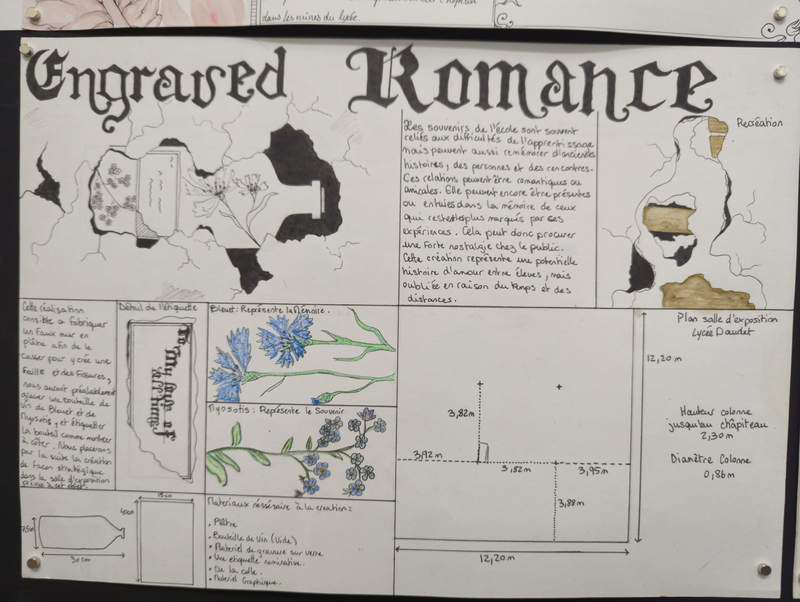 dans les ruines du lycée.
Engraved Romance
Les souvenirs de l'école sont souvent
reliés aux difficultés de l'apprentissage
mais peuvent aussi remémorer d'anciennes
histoires, des personnes et des rencontres.
Ces relations peuvent être romantiques ou
amicales. Elle peuvent encore être présentes
ou enfuies dans la mémoire de ceux
qui plus marqués par ses
expériences. Cela peut donc procurer
une forte nostalgie chez le public.
Cette création représente une potentielle
histoire d'amour entre élèves, mais
oubliée en raison du temps et des
distances.
Recréation
Cette réalisation
consiste a fabriquer
un faux mur en
plâtre afin de le
casser pour y crée une
faille et des fissures,
nous auront préalablement
graver une bouteille de
vin de Bleuet et de
Myosotis, et étiquetter
la bouteil comme montrer
à côter. Nous placerons
par la suite la création
de façon stratégique
dans la salle d'exposition
prévue à cet effet.
Détail de l'étiquette
To
My love of
all times
Bleuet: Représente la Mémoire.
Myosotis: Représente le Souvenir
7,5cm
30 cm
40cm
18cm
Materiaux nésséśaire à la creation:
• Plâtre
• Bouteille de Vin (Vide)
• Materiel de gravure sur verre
• Une étiquette nominative.
• De la colle.
• Materiel Graphique.
Plan salle d'exposition
Lycée Daudet
12,20 m
Hauteur colonne
jusqu'au chapiteau
2,30 m
Diamètre Colonne
0,86 m
3,82m
3,92m
3,82m
3,95m
3,88m
12,20 m